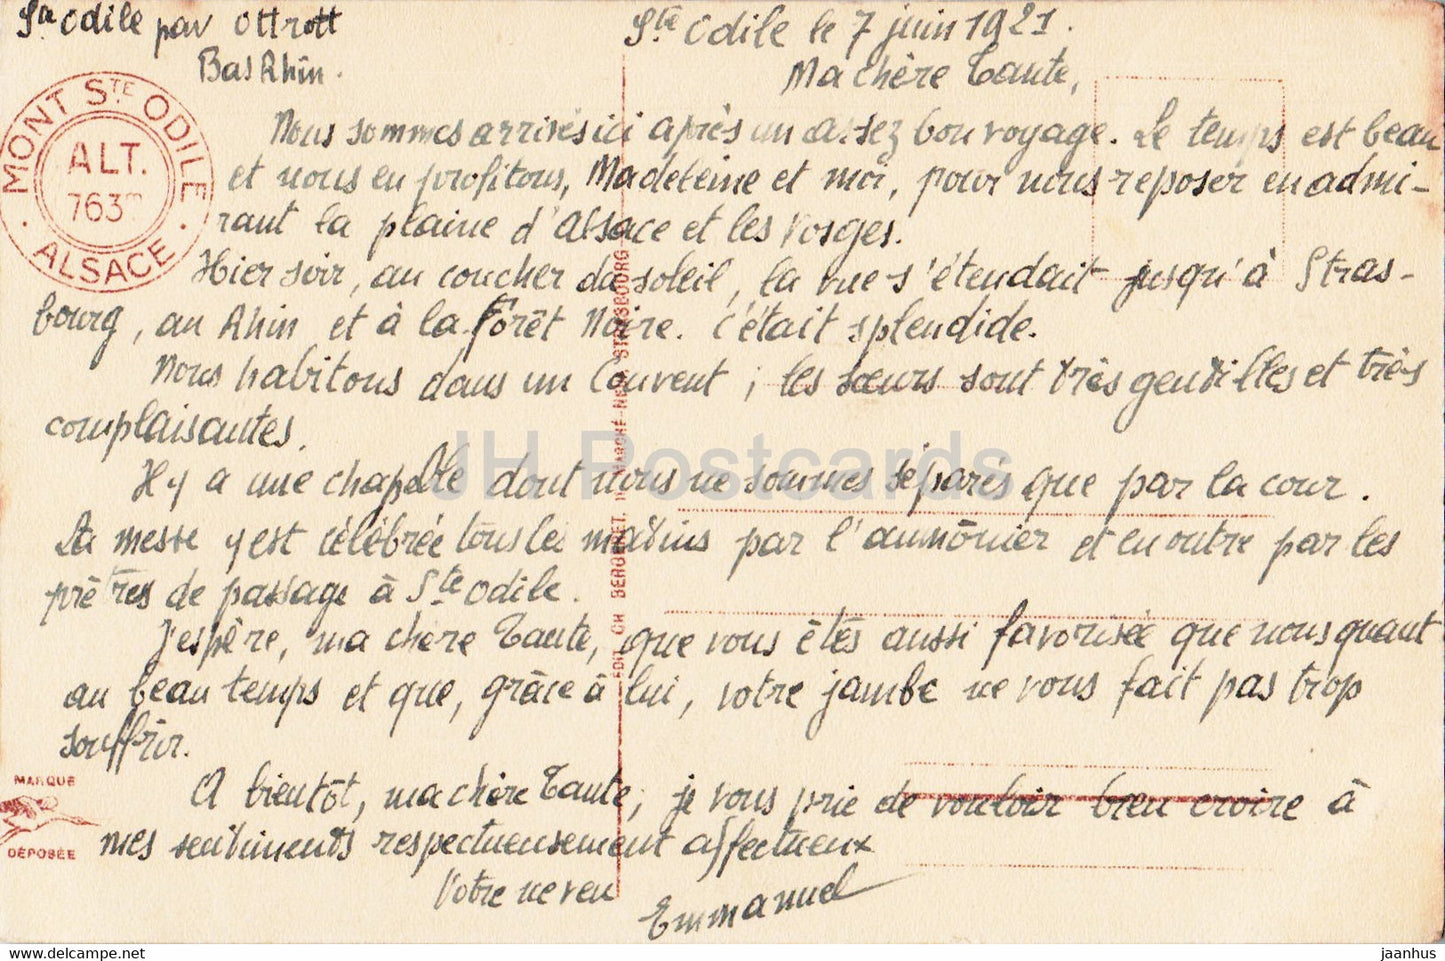 Ste Odile par Ottrott
Bas Rhin.
Ste Odile le 7 juin 1921.
Ma chère Tante,
MONT STE ODILE
ALT.
763m
ALSACE
Nous sommes arrivés ici après un assez bon voyage. Le temps est beau
et nous en profitons, Madeleine et moi, pour nous reposer en admi-
rant la plaine d'Alsace et les Vosges.
Hier soir, au coucher du soleil, la vue s'étendait jusqu'à Stras-
bourg, au Rhin et à la Forêt Noire. C'était splendide.
Nous habitons dans un Couvent; les sœurs sont très gentilles et très
complaisantes.
Il y a une chapelle dont nous ne sommes séparés que par la cour.
La messe y est célébrée tous les matins par l'aumônier et en outre par les
prêtres de passage à Ste Odile.
J'espère, ma chère Tante, que vous êtes aussi favorisée que nous quant
au beau temps et que, grâce à lui, votre jambe ne vous fait pas trop
souffrir.
A bientôt, ma chère Tante, je vous prie de vouloir bien croire à
mes sentiments respectueusement affectueux
Votre neveu
Emmanuel
MARQUE
DÉPOSÉE
EDIT. CH BERGERET, MARCHÉ-NEUF STRASBOURG
JH Postcards
hippostcard.com
jaanhus